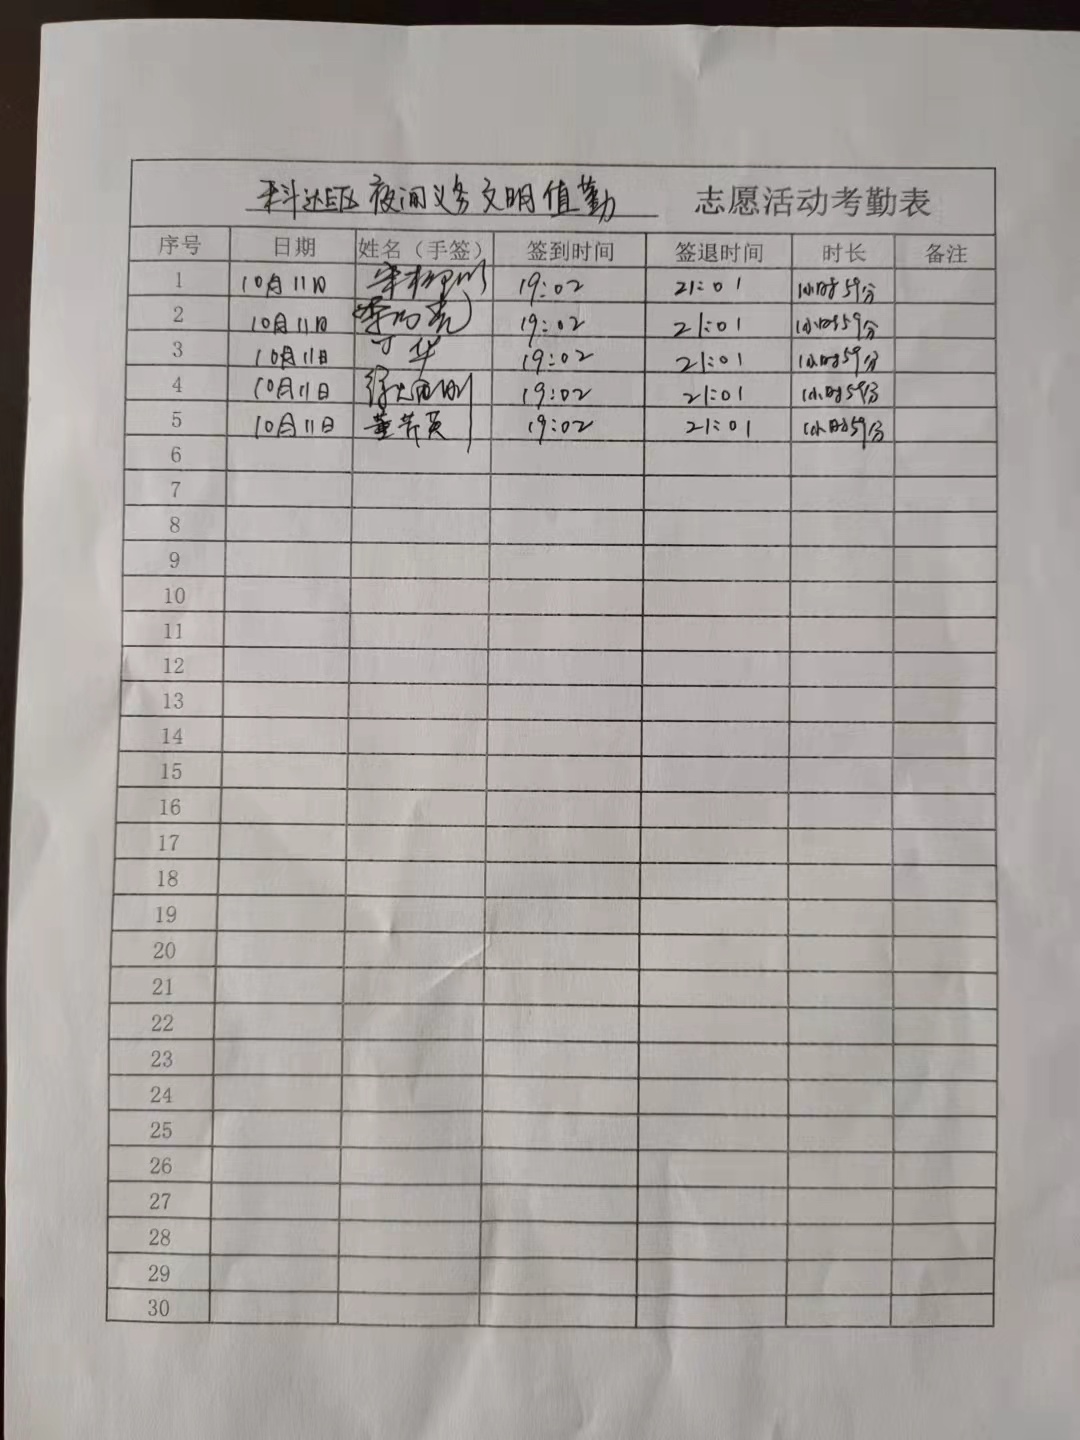 科达E区夜间义务文明值勤 志愿活动考勤表
序号 日期 姓名（手签） 签到时间 签退时间 时长 备注
1 10月11日 19:02 21:01 1小时59分
2 10月11日 19:02 21:01 1小时59分
3 10月11日 丁华 19:02 21:01 1小时59分
4 10月11日 19:02 21:01 1小时59分
5 10月11日 董荣英 19:02 21:01 1小时59分
6
7
8
9
10
11
12
13
14
15
16
17
18
19
20
21
22
23
24
25
26
27
28
29
30